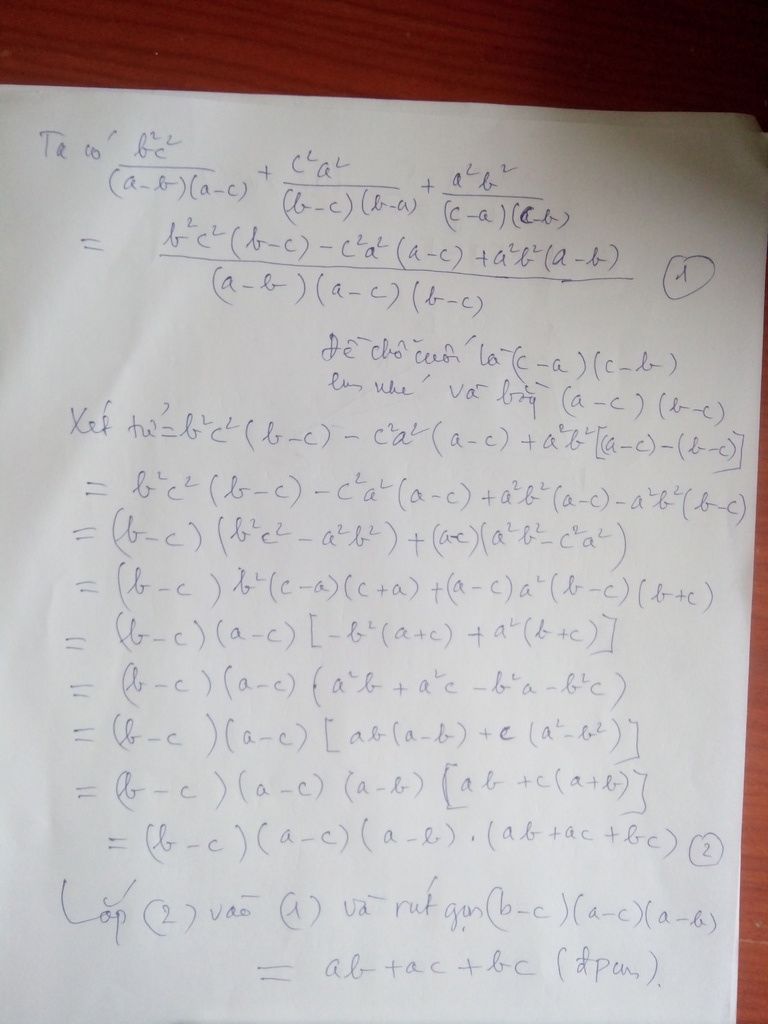 Ta có b²c²/(a-b)(a-c) + c²a²/(b-c)(b-a) + a²b²/(c-a)(c-b)
= b²c²(b-c) - c²a²(a-c) + a²b²(a-b)/(a-b)(a-c)(b-c) (1)
Đề chỗ cuối là (c-a)(c-b)
em nhé và bằng (a-c)(b-c)
Xét tử = b²c²(b-c) - c²a²(a-c) + a²b²[(a-c)-(b-c)]
= b²c²(b-c) - c²a²(a-c) + a²b²(a-c) - a²b²(b-c)
= (b-c)(b²c² - a²b²) + (a-c)(a²b² - c²a²)
= (b-c) b²(c-a)(c+a) + (a-c)a²(b-c)(b+c)
= (b-c)(a-c)[-b²(a+c) + a²(b+c)]
= (b-c)(a-c)(a²b + a²c - b²a - b²c)
= (b-c)(a-c)[ab(a-b) + c(a²-b²)]
= (b-c)(a-c)(a-b)[ab + c(a+b)]
= (b-c)(a-c)(a-b).(ab+ac+bc) (2)
Lắp (2) vào (1) và rút gọn (b-c)(a-c)(a-b)
= ab+ac+bc (đpcm).